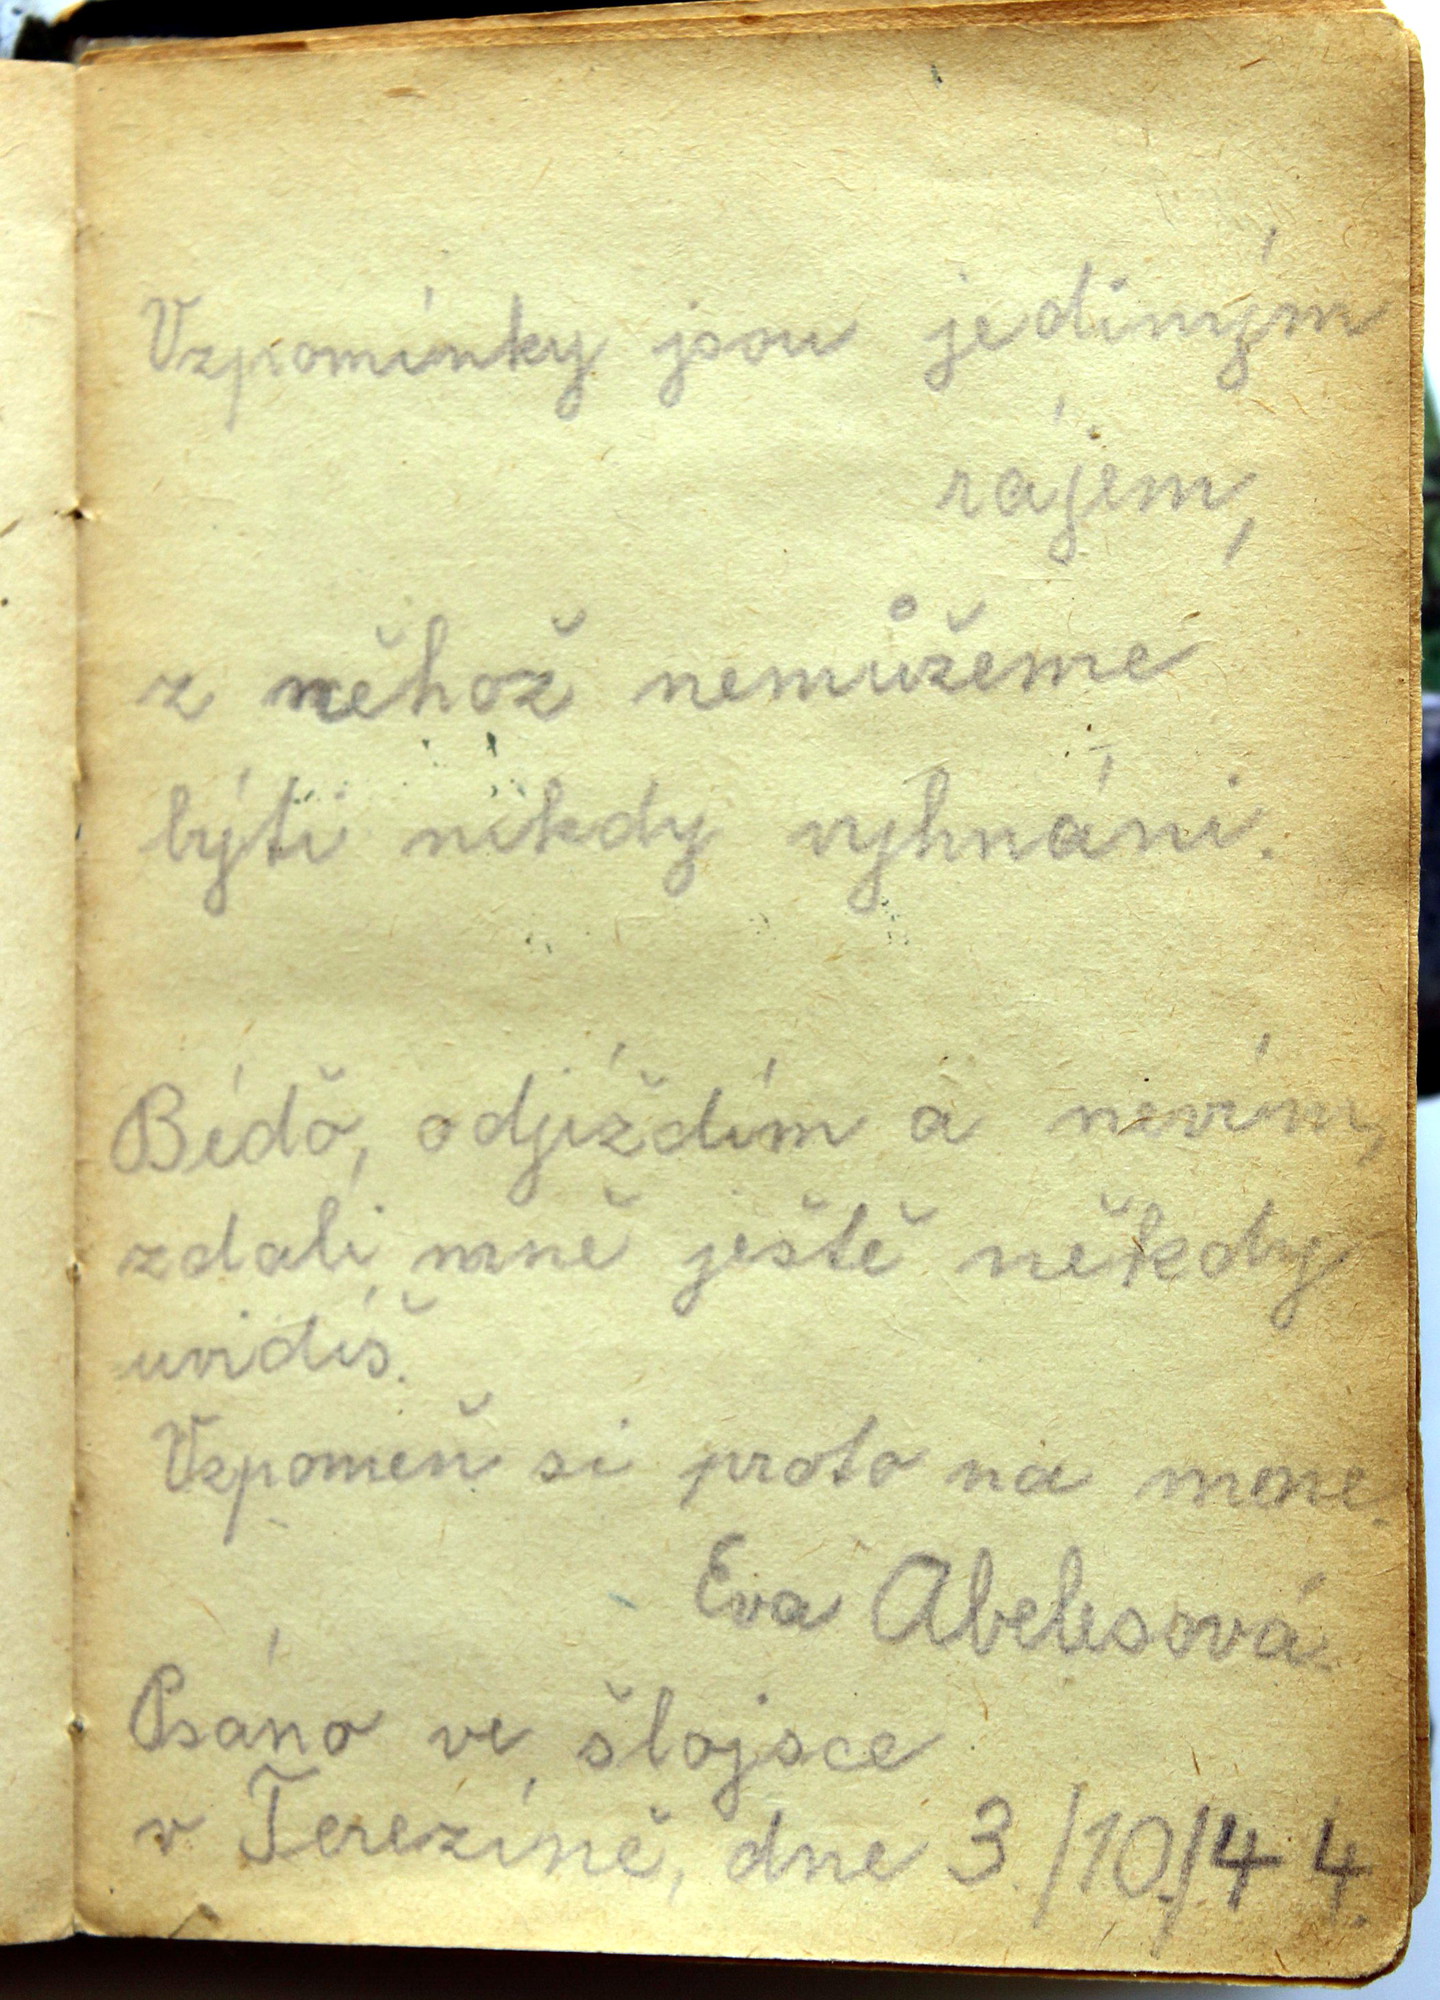 Vzpomínky jsou jediným
rájem,
z něhož nemůžeme
býti nikdy vyhnáni.
Béďo, odjíždím a nevím,
zdali mně ještě někdy
uvidíš.
Vzpomeň si proto na mne.
Eva Abelesová.
Psáno ve šlojsce
v Terezíně, dne 3./10./44.